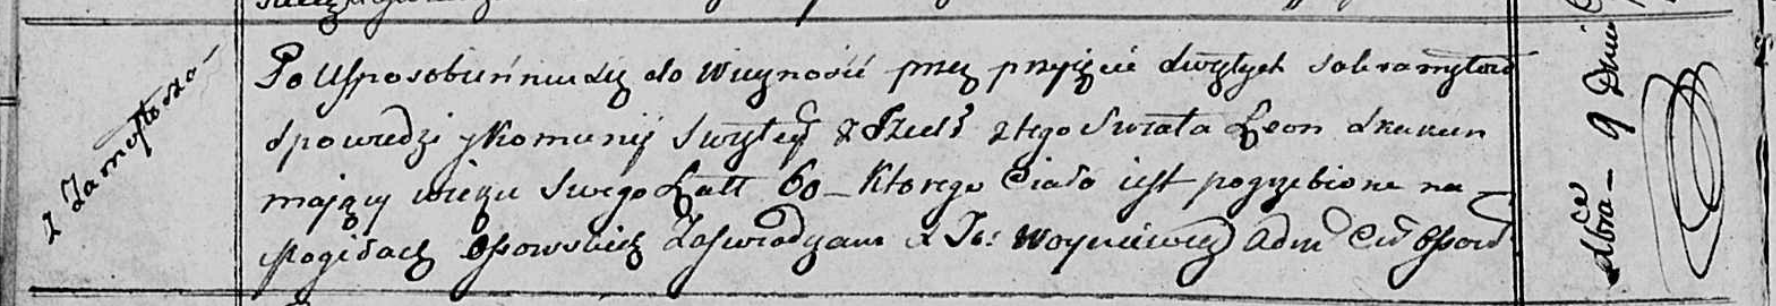 z Zamostoza
Po Usposobieńniu się do Wieczności przez przyięcie Swyętych Sakramętow
Spowiedzi y Komunij Swyętey z Szedł z tego Swiata Leon Skakun
maiący wieku Swego Latt 60 – Ktorego Ciało iest pogrzebione na
Mogiłach Ossowskich Zaswiadczam X Jo: Woyniewicz Adm Cer Ossow
dbra – 9 Dnia